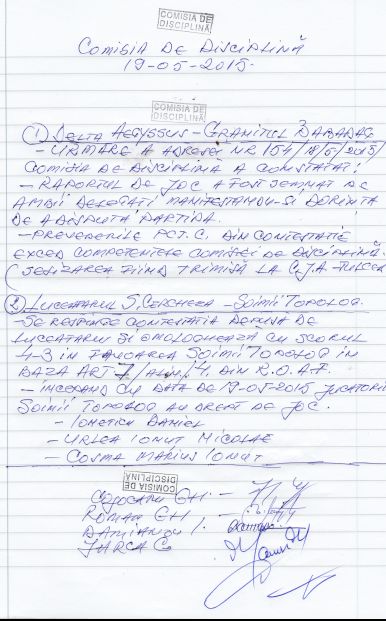 COMISIA DE
DISCIPLINĂ
COMISIA DE DISCIPLINĂ
19-05-2015.
COMISIA DE
DISCIPLINĂ
① DELTA AEGYSSUS - GRANITUL BABADAG
- URMARE A ADRESEI NR 154/18/5/2015/
COMISIA DE DISCIPLINA A CONSTATAT:
- RAPORTUL DE JOC A FOST SEMNAT DE
AMBII DELEGATI MANIFESTANDU-SI DORINTA
DE A DISPUTA PARTIDA.
- PREVEDERILE PCT.C. DIN CONTESTATIE
EXCED COMPETENTELE COMISIEI DE DISCIPLINĂ.
SESIZAREA FIIND TRIMISĂ LA C.J.A. TULCEA
② LUCEAFARUL S. CERCHEZA - SOIMII TOPOLOG.
- SE RESPINGE CONTESTATIA DEPUSĂ DE
LUCEAFARUL SI OMOLOGHEAZĂ CU SCORUL
4-3 IN FAVOAREA SOIMII TOPOLOG IN
BAZA ART 7/ALIN/4. DIN R.O.A.F.
- INCEPAND CU DATA DE 19-05-2015 JUCATORII
SOIMII TOPOLOG AU DREPT DE JOC.
- IONETICA DANIEL
- URLEA IONUT NICOLAE
- COSMA MARIUS IONUT
COMISIA DE
DISCIPLINĂ
COJOCARU GH. -
ROMAN GH -
DAMIANOV I.
JURCA C